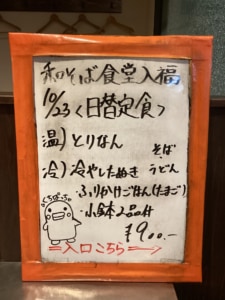 和そば食堂入福
10/23〈日替定食〉
温)とりなん
そば
冷)冷やしたぬき うどん
・ふりかけごはん(たまご)
・小鉢2品付
¥900.-
=入口こちら⇒